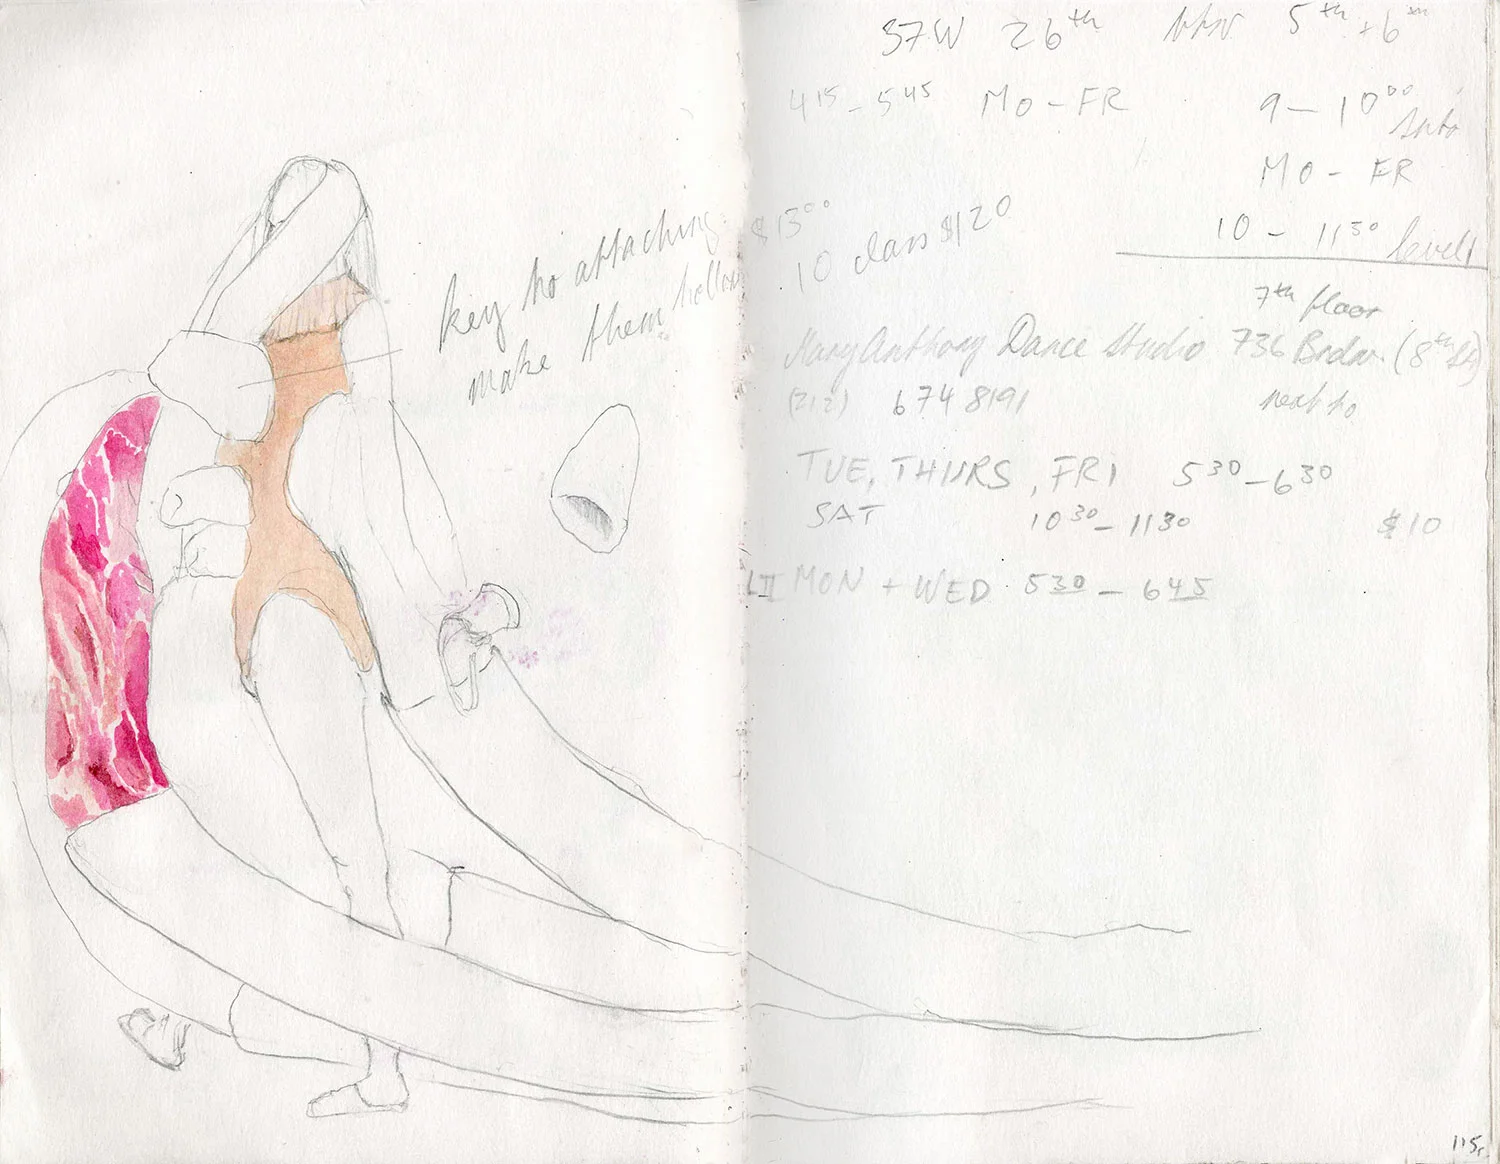 key to attaching
make them hollow
37W 26th btw 5th + 6th
4 15 - 5 45 MO - FR
9 - 10 00
MO - FR
10 - 11 30 level 1
$13 00
10 class $120
7th floor
Mary Anthony Dance Studio 736 Brdw. (8th St)
(212) 674 8191 next to
TUE, THURS, FRI 5 30 - 6 30
SAT 10 30 - 11 30 $10
LII MON + WED 5 30 - 6 45
115r